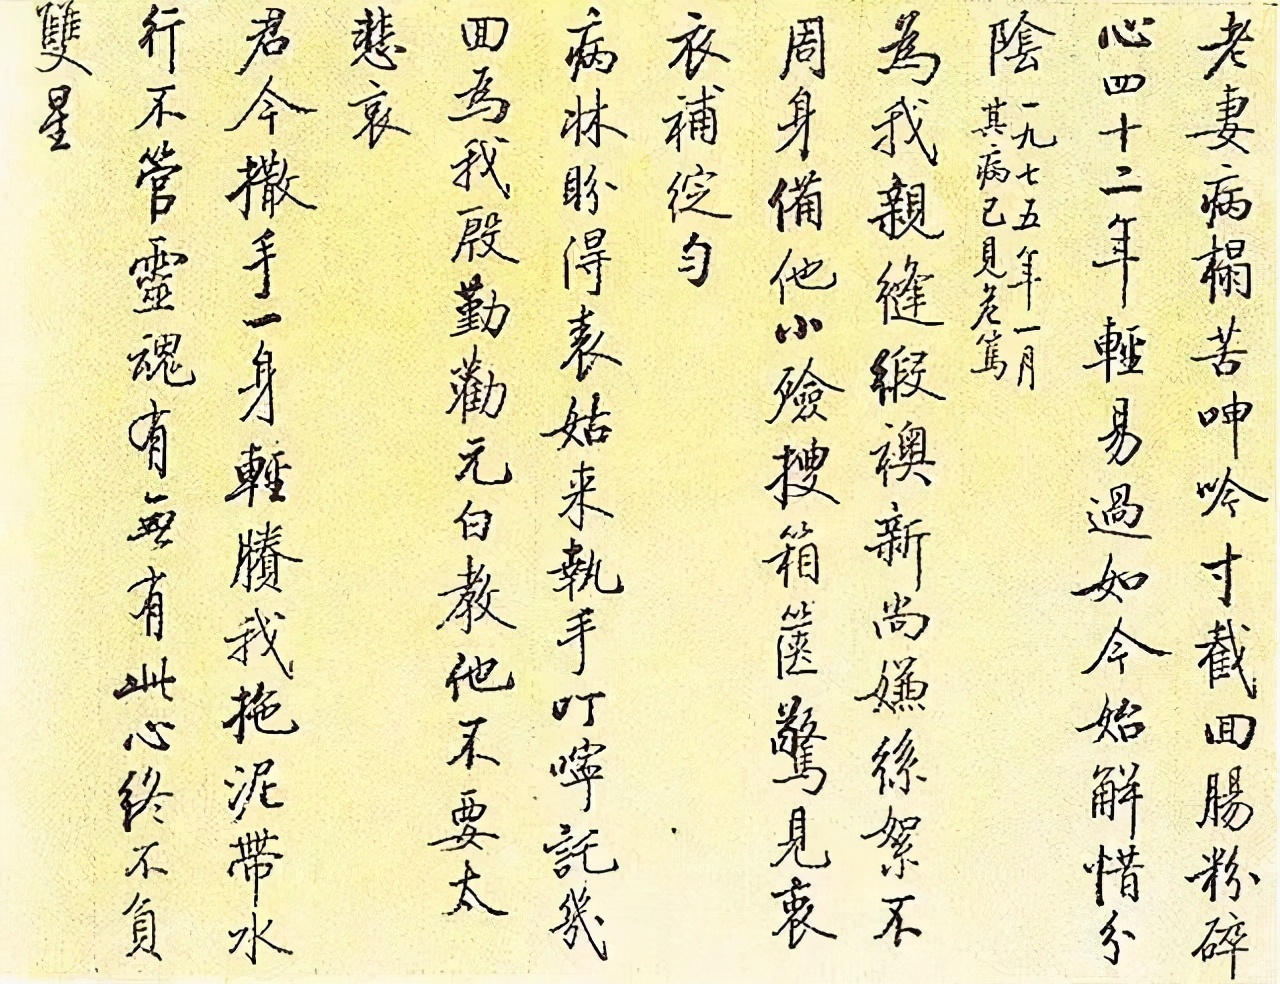 老妻病榻苦呻吟寸截回腸粉碎
心四十二年輕易過如今始解惜分
陰
一九七五年一月
其病已見危篤
為我親縫緞襖新尚嫌絲絮不
周身備他小殮搜箱篋驚見衷
衣補綻勻
病牀盼得表姑来執手叮嚀託幾
回為我殷勤勸元白教他不要太
悲哀
君今撒手一身輕賸我拖泥帶水
行不管靈魂有無有此心終不負
雙星